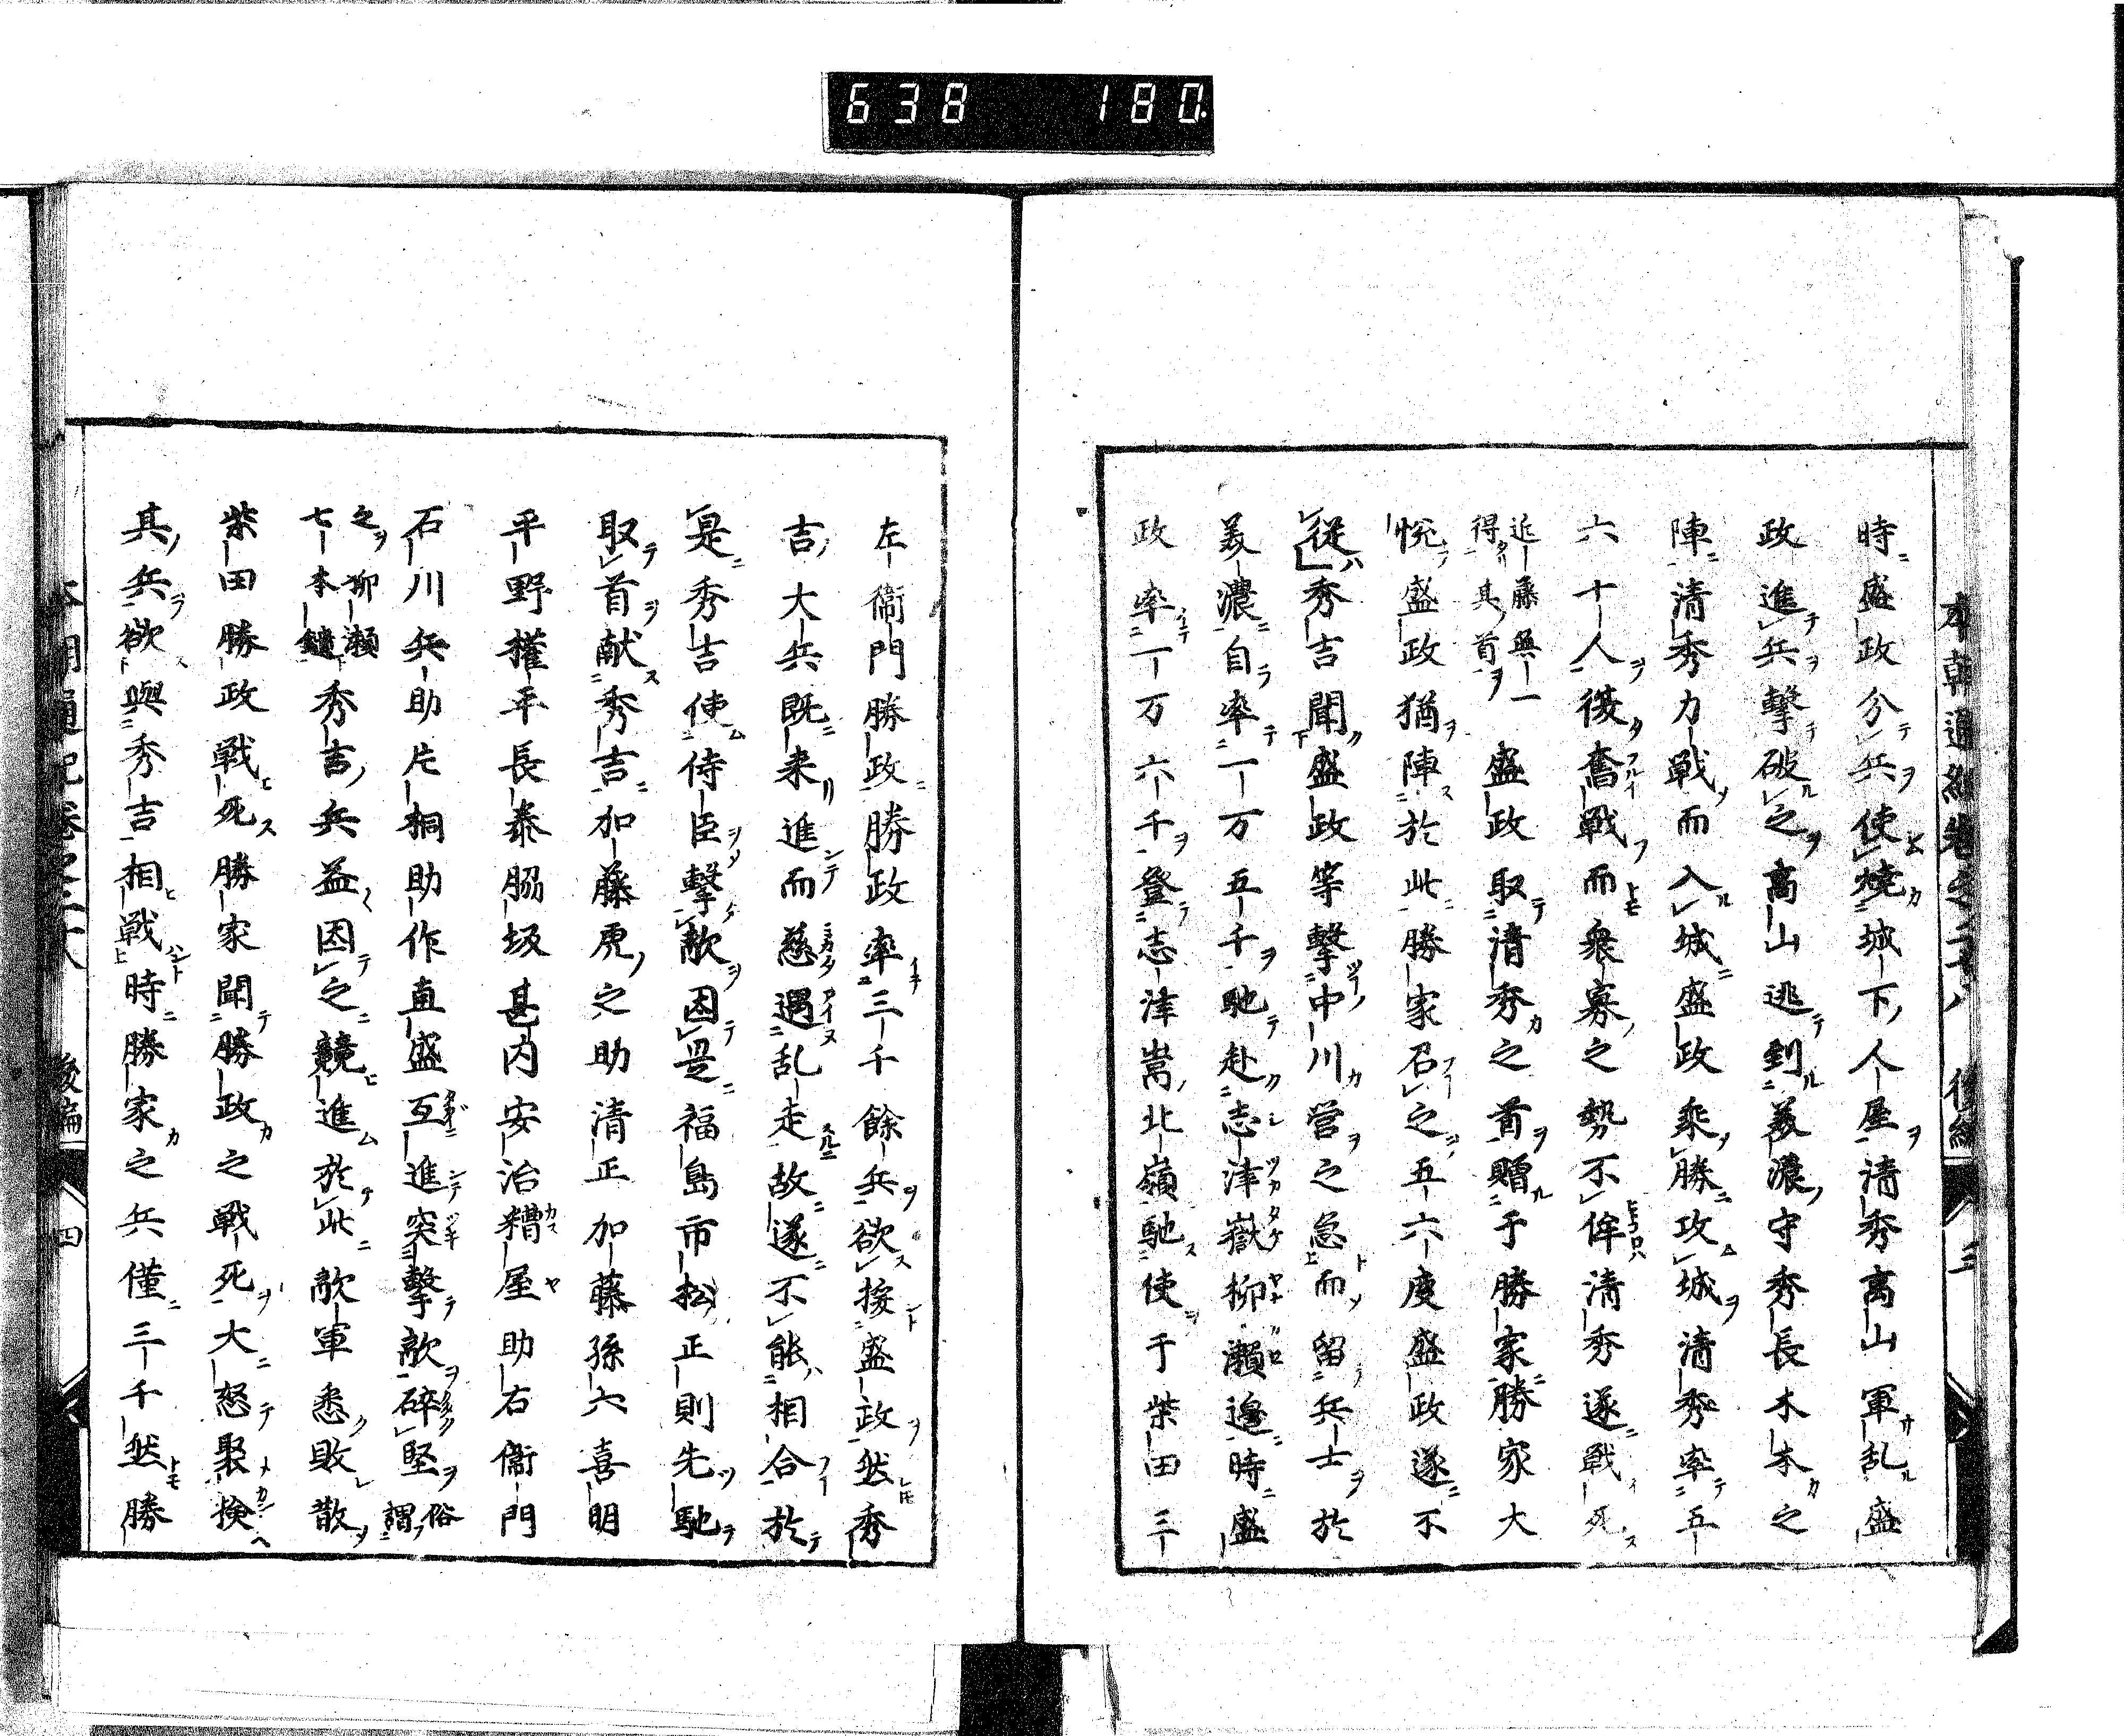 638 180
時盛政分兵使燒城下人屋清秀高山軍乱盛
政進兵擊破之高山逃到美濃守秀長木本之
陣清秀力戰而入城盛政乘勝攻城清秀率五
六十人復奮戰而衆寡之勢不侔清秀遂戰死
近藤無一
得其首
盛政取清秀之首贈于勝家勝家大
悅盛政猶陣於此勝家召之五六度盛政遂不
從秀吉聞盛政等擊中川營之急而留兵士於
美濃自率一万五千馳赴志津嶽柳瀨邊時盛
政率一万六千登志津嵩北嶺馳使于柴田三
左衞門勝政勝政率三千餘兵欲援盛政然秀
吉大兵既來進而遇乱走故遂不能相合於
是秀吉使侍臣擊敵因是福島市松正則先馳
取首献秀吉加藤虎之助清正加藤孫六喜明
平野權平長泰脇坂甚内安治糟屋助右衞門
石川兵助片桐助作直盛互進突擊敵碎堅
俗
謂
之柳瀨
七本鑓
秀吉兵益因之競進於此敵軍悉敗散
柴田勝政戰死勝家聞勝政之戰死大怒聚檢
其兵欲與秀吉相戰時勝家之兵僅三千然勝
四